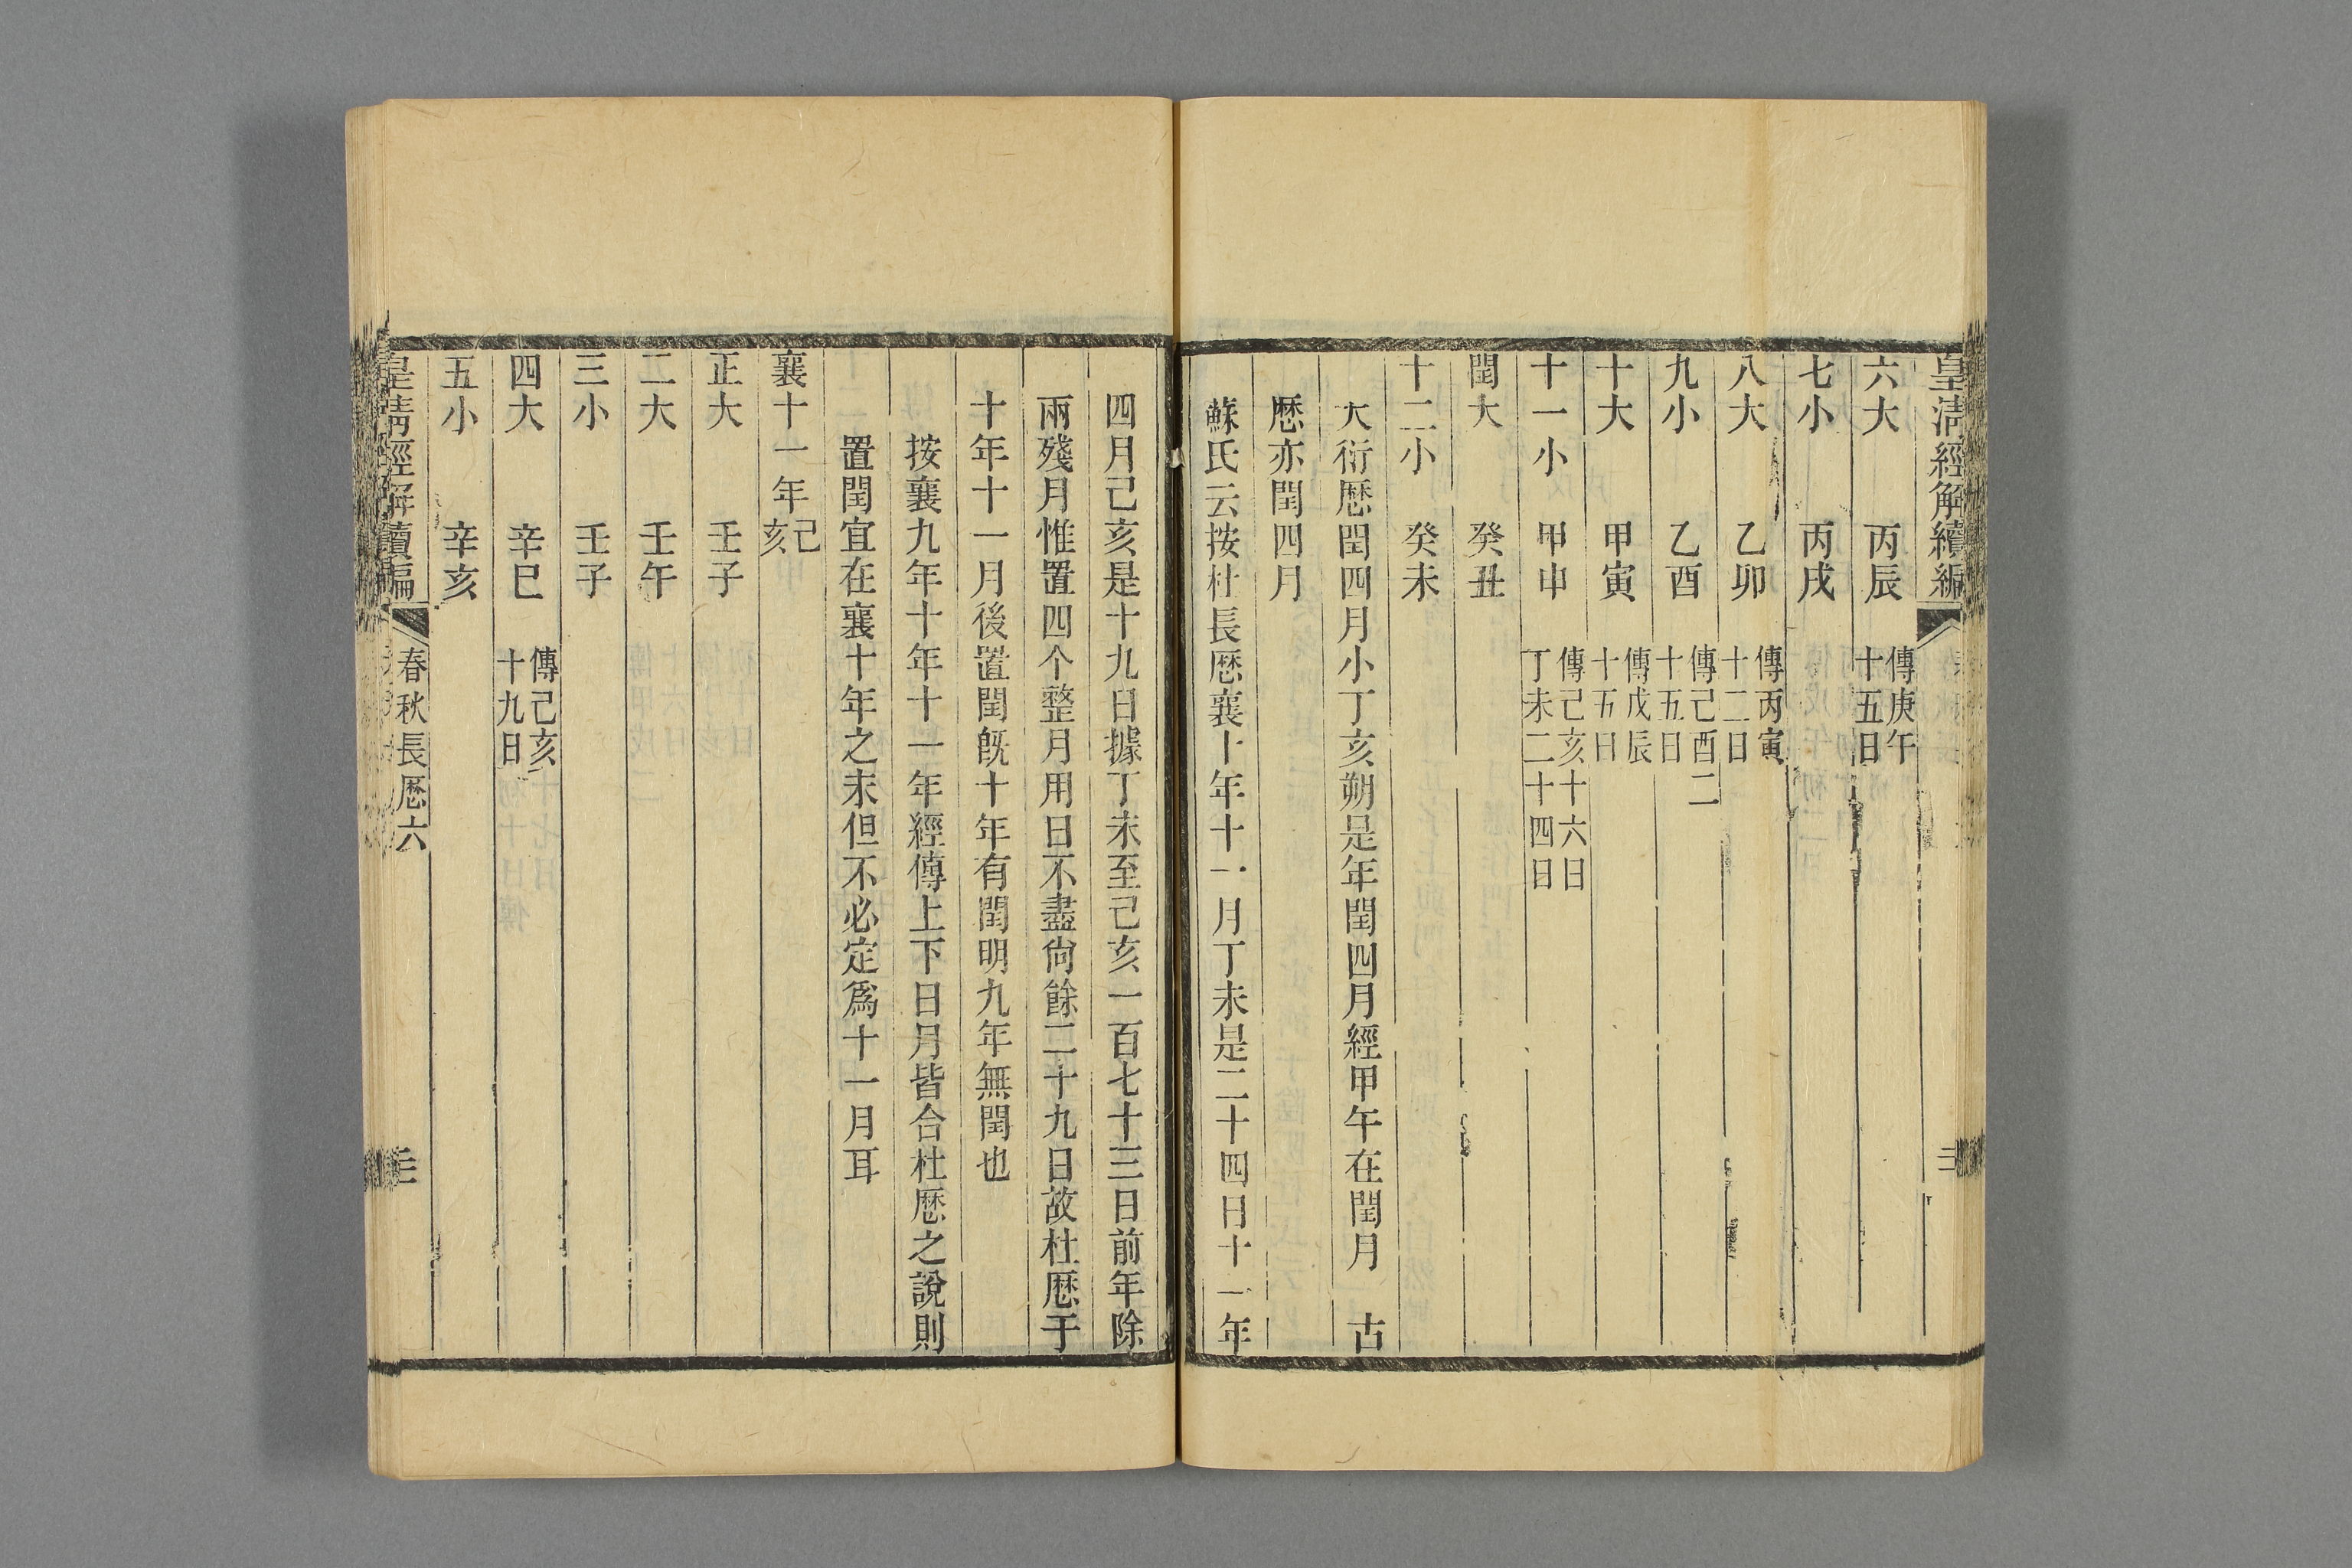 皇清經解續編
六大 丙辰 傳庚午十五日
七小 丙戌
八大 乙卯 傳丙寅十二日
九小 乙酉 傳己酉二十五日
十大 甲寅 傳戊辰十五日
十一小 甲申 傳己亥十六日丁未二十四日
閏大 癸丑
十二小 癸未
大衍厯閏四月小丁亥朔是年閏四月經甲午在閏月 古
厯亦閏四月
蘇氏云按杜長厯襄十年十一月丁未是二十四日十一年
四月己亥是十九日據丁未至己亥一百七十三日前年除
兩殘月惟置四个整月用日不盡尙餘二十九日故杜厯于
十年十一月後置閏旣十年有閏明九年無閏也
按襄九年十年十一年經傳上下日月皆合杜厯之說則
置閏宜在襄十年之末但不必定爲十一月耳
襄十一年己亥
正大 壬子
二大 壬午
三小 壬子
四大 辛巳 傳己亥十九日
五小 辛亥
皇清經解續編 春秋長厯六